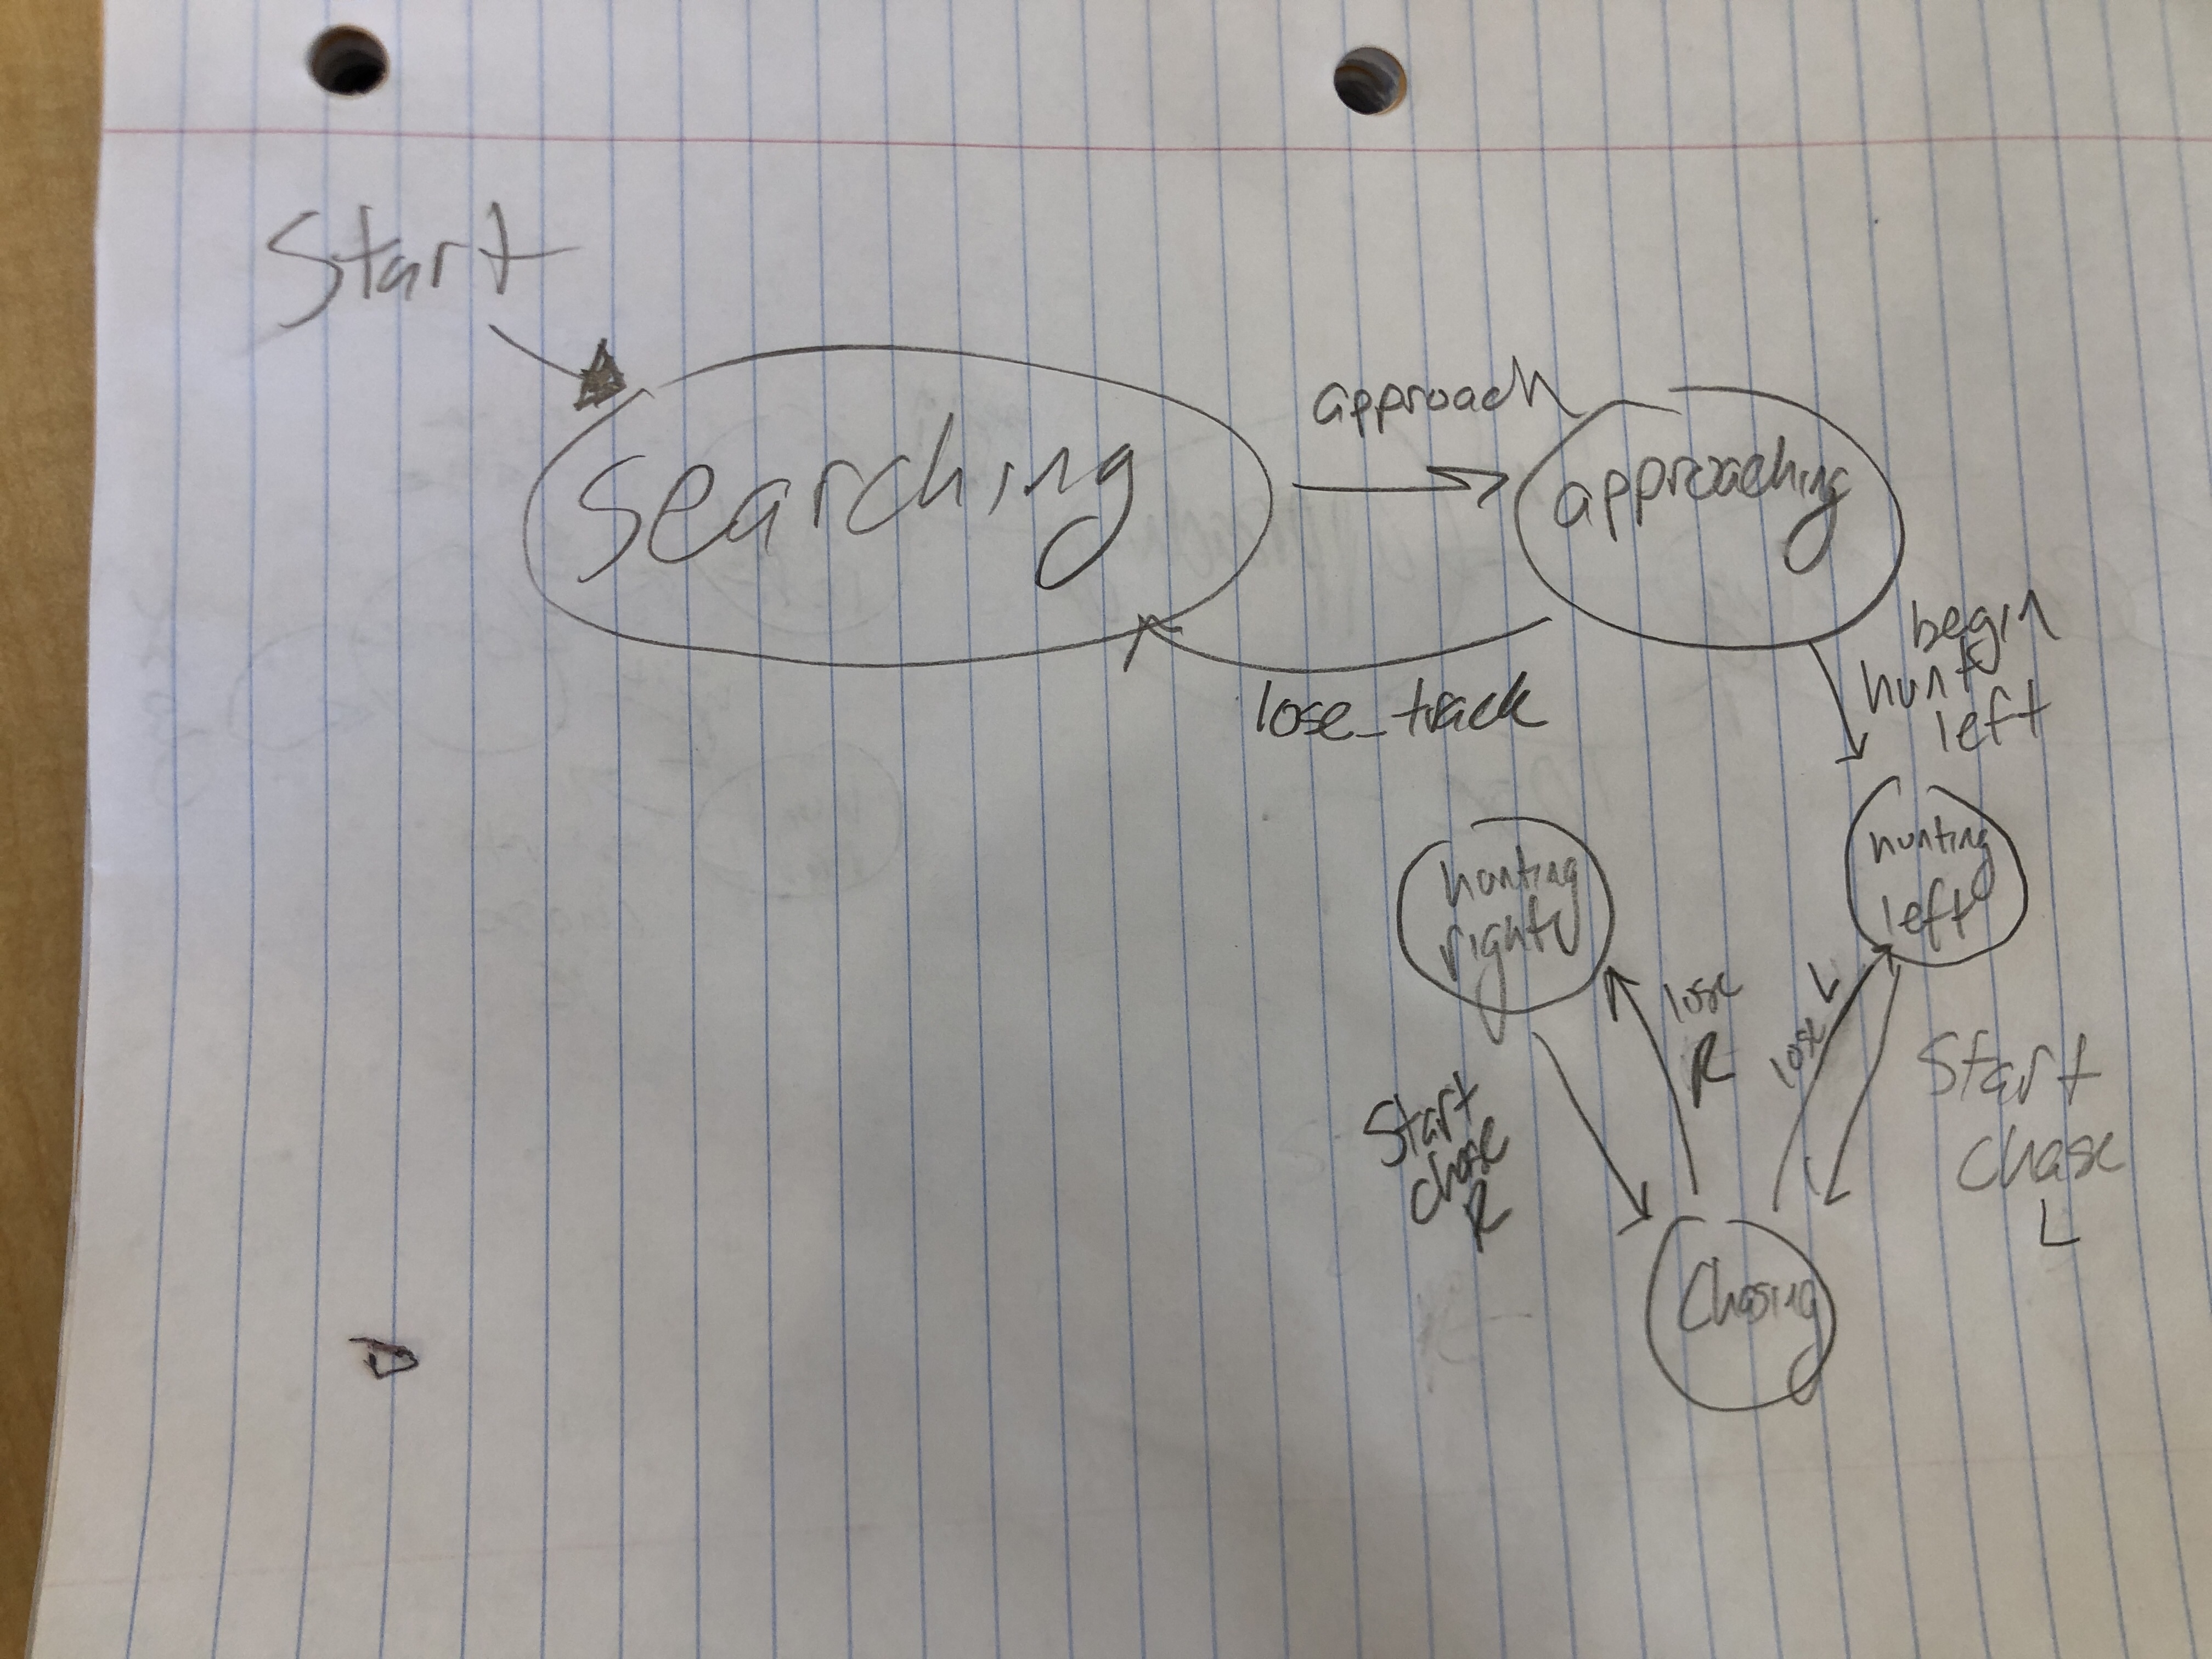 Start
approach
Searching
approaching
lose_track
begin
hunt
left
hunting
left
hunting
right
lose
R
lose L
Start
chase
R
Start
chase
L
Chasing